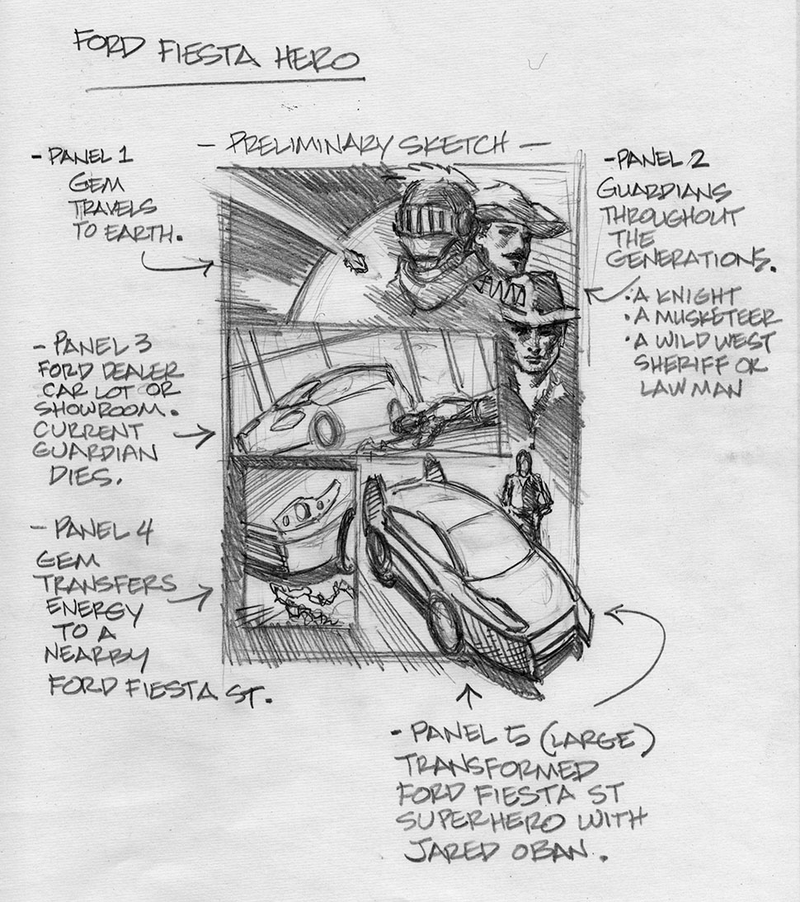 FORD FIESTA HERO
- PRELIMINARY SKETCH -
- PANEL 1
GEM
TRAVELS
TO EARTH.
- PANEL 2
GUARDIANS
THROUGHOUT
THE
GENERATIONS.
• A KNIGHT
• A MUSKETEER
• A WILD WEST
SHERIFF OR
LAWMAN
- PANEL 3
FORD DEALER
CAR LOT OR
SHOWROOM.
CURRENT
GUARDIAN
DIES.
- PANEL 4
GEM
TRANSFERS
ENERGY
TO A
NEARBY
FORD FIESTA ST.
- PANEL 5 (LARGE)
TRANSFORMED
FORD FIESTA ST
SUPERHERO WITH
JARED OBAN.